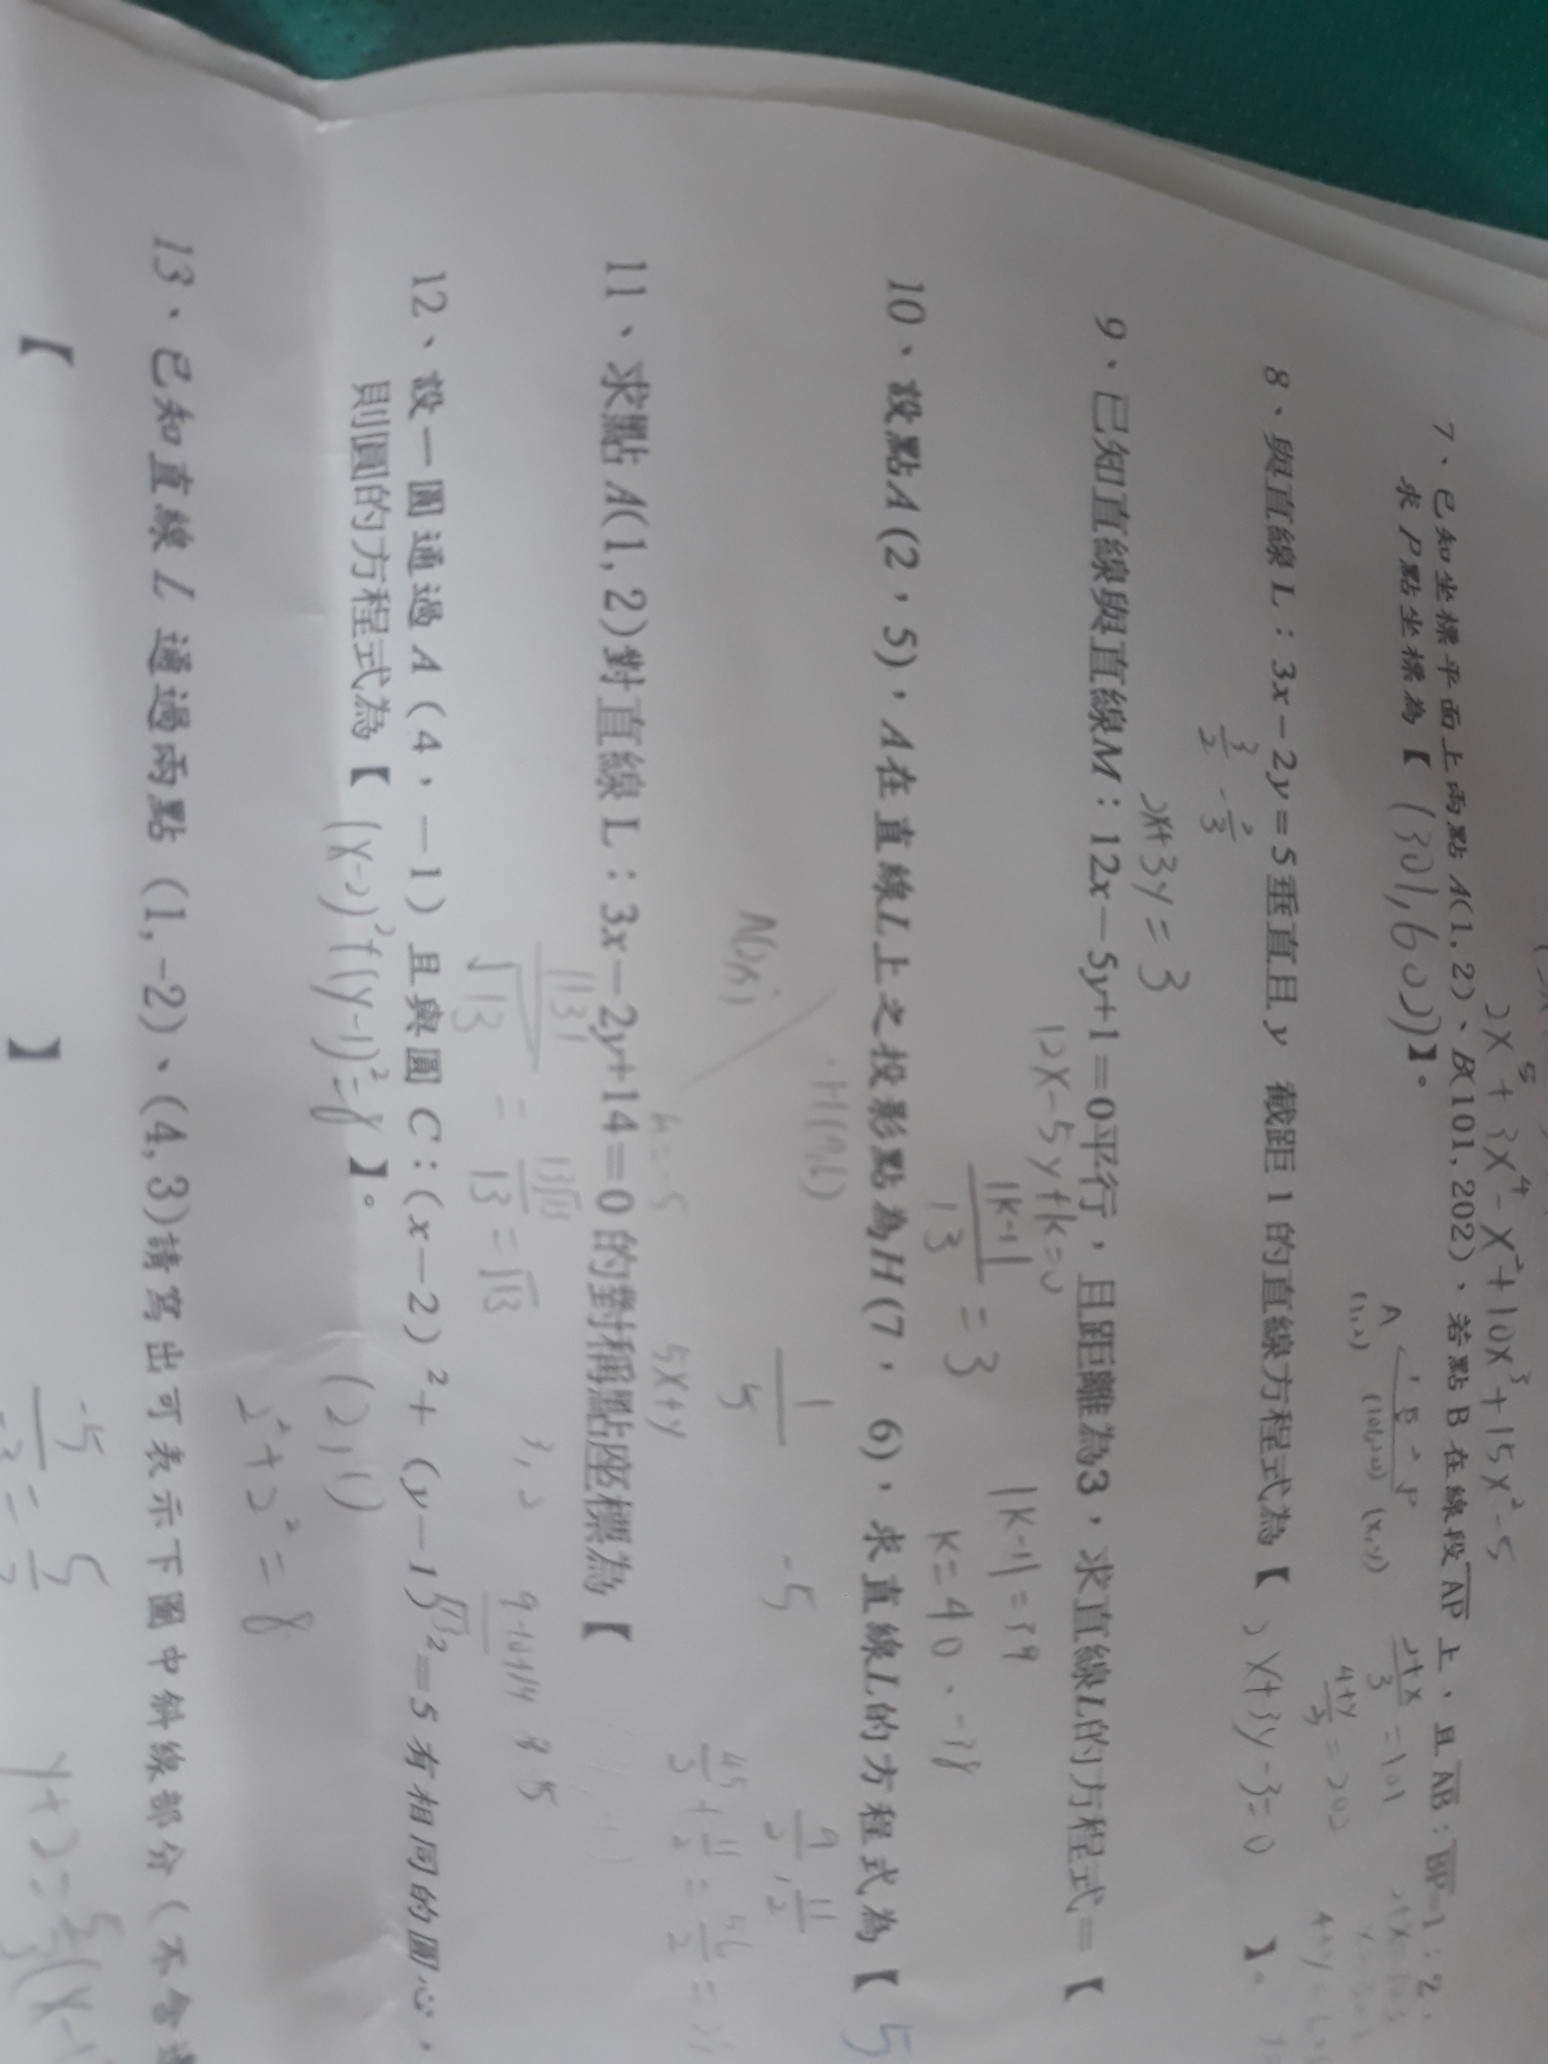 2x⁵+3x⁴-x²+10x³+15x²-5
7、已知坐標平面上兩點 A(1,2)、B(101,202)、若點 B 在線段 AP 上,且 AB:BP=1:2,
求 P 點坐標為【 (301,602) 】。
A 1 B 2 P
(1,2) (101,202) (x,y)
2+x/3=101
4+y/3=202
8、與直線 L:3x-2y=5 垂直且 y 截距 1 的直線方程式為【 2x+3y-3=0 】。
3/2 -2/3
2x+3y=3
9、已知直線與直線M:12x-5y+1=0平行,且距離為3,求直線L的方程式=【
12x-5y+k=0
|k-1|/13=3 |k-1|=39
k=40、-38
10、設點A(2,5),A在直線L上之投影點為H(7, 6),求直線L的方程式為【 5
·H(7,6)
1/5 -5
9/2,11/2
5x+y
45/2+11/2=56/2
k=-5
11、求點 A(1,2)對直線 L:3x-2y+14=0 的對稱點座標為【
|13|/√13=13√13/13=√13
3,2
12、設一圓通過 A(4,-1)且與圓 C:(x-2)²+(y-1)²=5 有相同的圓心,
則圓的方程式為【 (x-2)²+(y-1)²=8 】。
(2,1)
2²+2²=8
13、已知直線 L 通過兩點 (1,-2)、(4,3)請寫出可表示下圖中斜線部分(不含
-5/-3=5/3
【 】